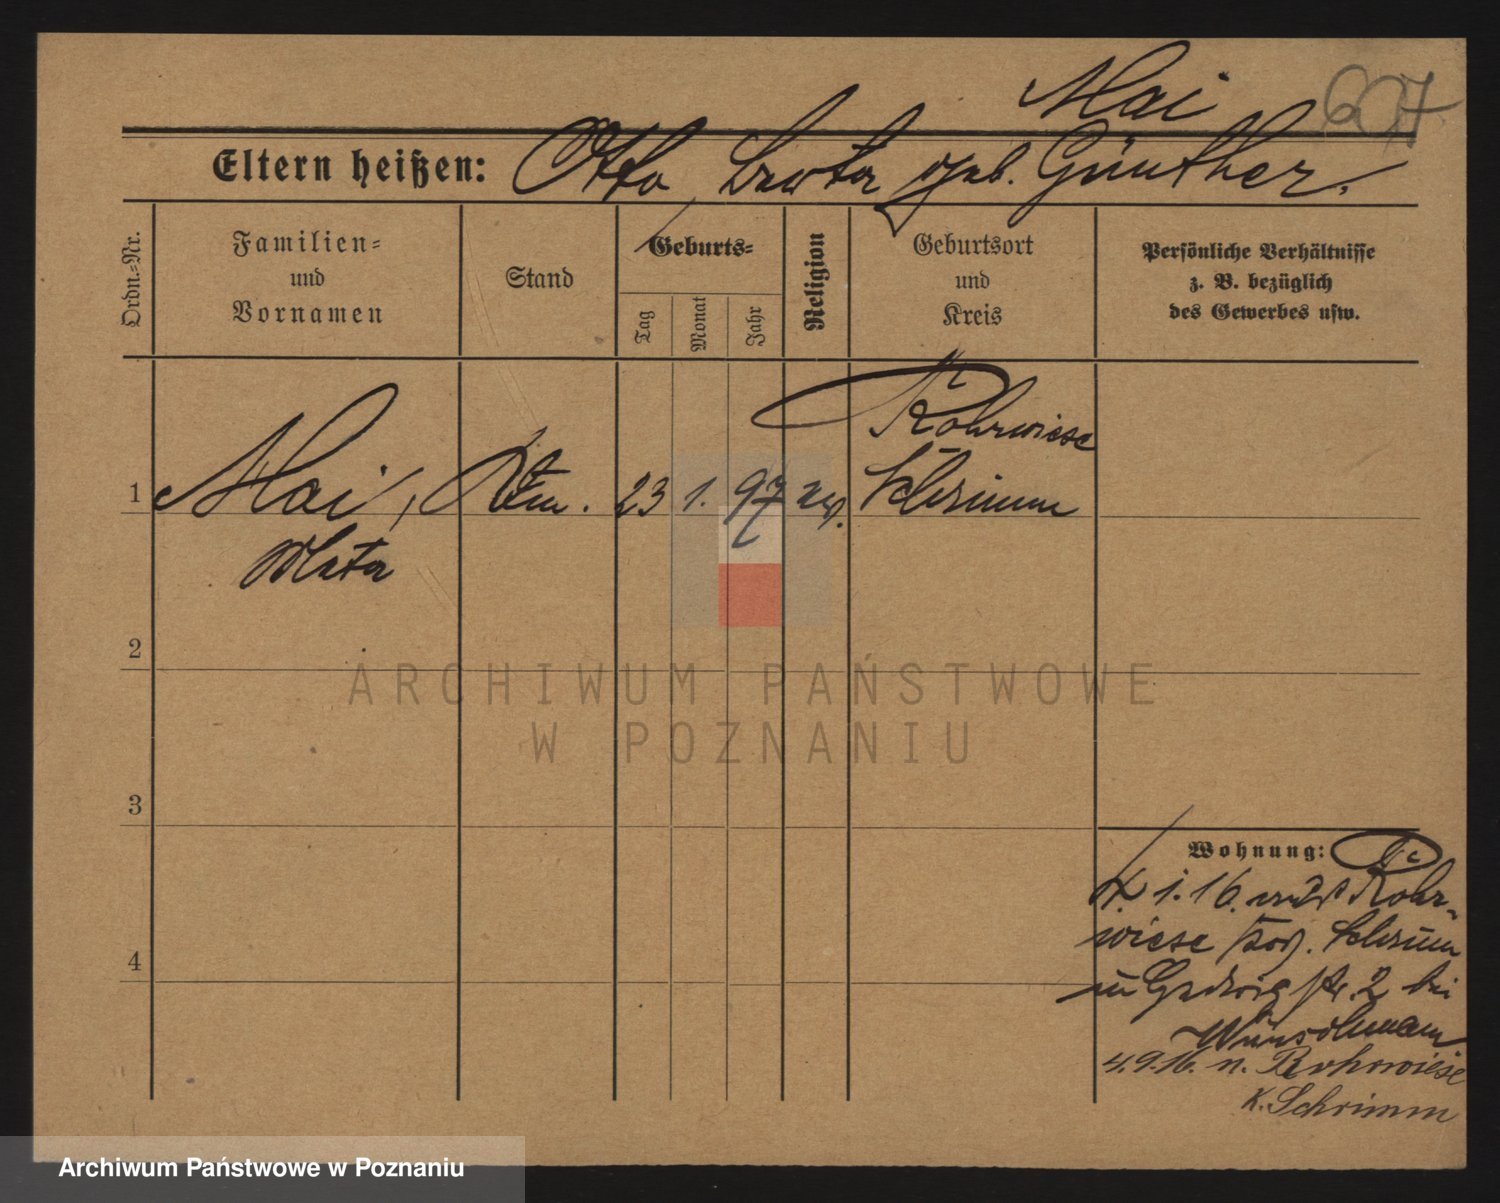 Mai
607
Eltern heißen: Otto Berta geb. Günther.
Ordn.-Nr.
Familien-
und
Vornamen
Stand
Geburts-
Tag
Monat
Jahr
Religion
Geburtsort
und
Kreis
Persönliche Verhältnisse
z. B. bezüglich
des Gewerbes usw.
Rohrwiese
1 Mai, 23 1. 97 ev. Schrimm
Meta
2
3
4
Wohnung:
1. 16. Rohr-
wiese Schrimm
2 bei
4.9.16. n. Rohrwiese
K. Schrimm
ARCHIWUM PAŃSTWOWE
W POZNANIU
Archiwum Państwowe w Poznaniu